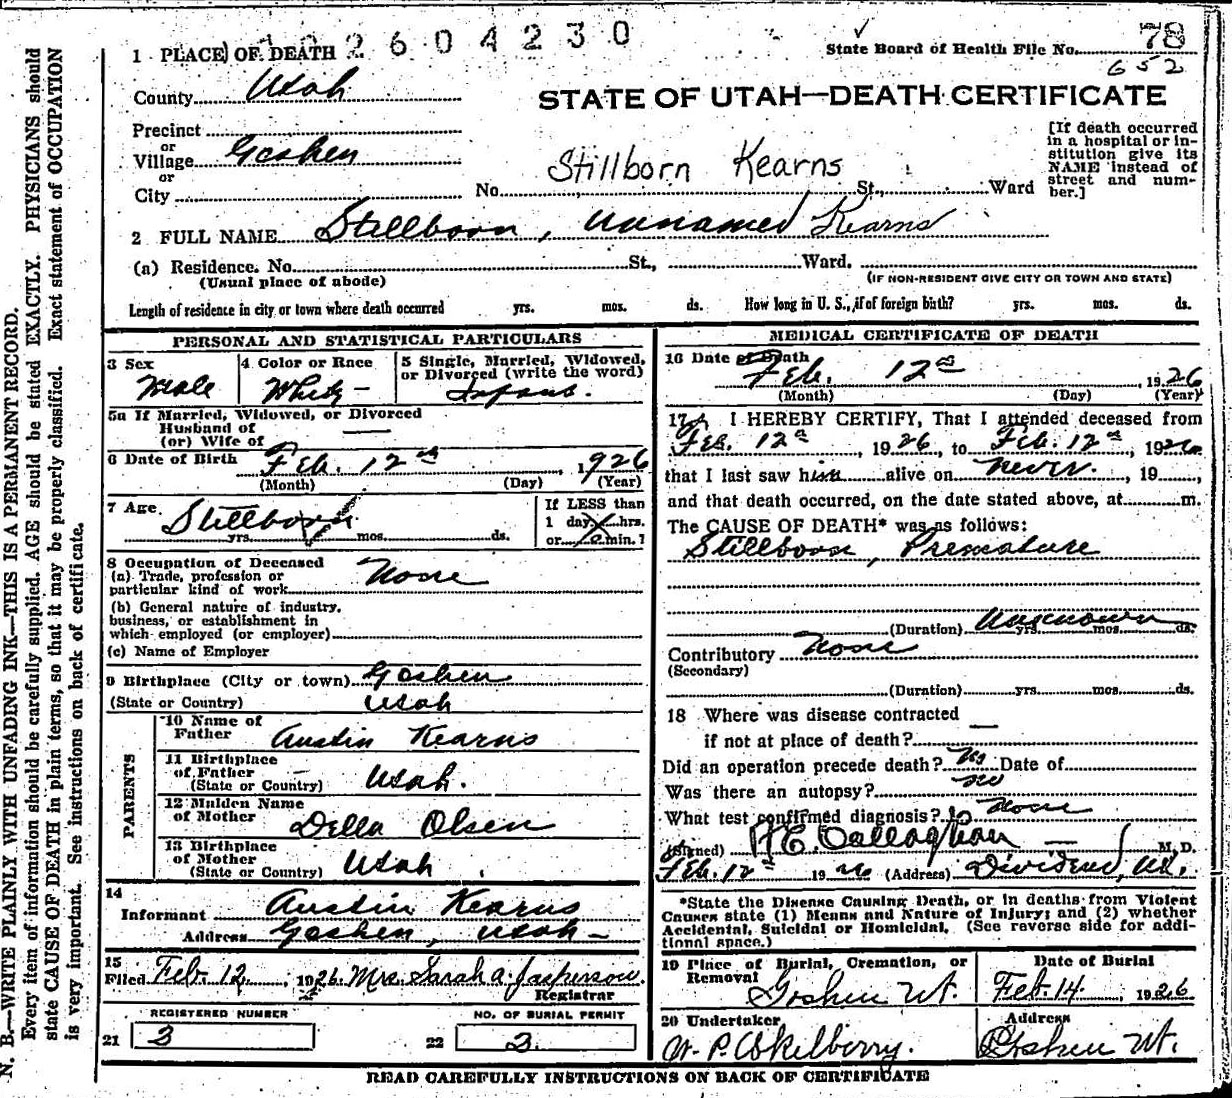 2604230
State Board of Health File No. 78
652
1 PLACE OF DEATH
County Utah
STATE OF UTAH—DEATH CERTIFICATE
Precinct
or
Village Goshen
or
City
Stillborn Kearns
No. St., Ward
[If death occurred
in a hospital or in-
stitution give its
NAME instead of
street and num-
ber.]
2 FULL NAME Stillborn, unnamed Kearns
(a) Residence. No. St., Ward.
(Usual place of abode)
(IF NON-RESIDENT GIVE CITY OR TOWN AND STATE)
Length of residence in city or town where death occurred yrs. mos. ds. How long in U. S., if of foreign birth? yrs. mos. ds.
PERSONAL AND STATISTICAL PARTICULARS
3 Sex
Male
4 Color or Race
White
5 Single, Married, Widowed,
or Divorced (write the word)
Infant.
5a If Married, Widowed, or Divorced
Husband of
(or) Wife of
6 Date of Birth Feb. 12th, 1926
(Month) (Day) (Year)
7 Age Stillborn
yrs. mos. ds.
If LESS than
1 day hrs.
or min.?
8 Occupation of Deceased
(a) Trade, profession or
particular kind of work None
(b) General nature of industry,
business, or establishment in
which employed (or employer)
(c) Name of Employer
9 Birthplace (City or town) Goshen
(State or Country) Utah
PARENTS
10 Name of
Father Austin Kearns
11 Birthplace
of Father
(State or Country) Utah.
12 Maiden Name
of Mother Della Olsen
13 Birthplace
of Mother
(State or Country) Utah
14
Informant Austin Kearns
Address Goshen, Utah
15
Filed Feb. 12, 1926 Mrs. Sarah A. Jasperson
Registrar
REGISTERED NUMBER
21 3
NO. OF BURIAL PERMIT
22 3
MEDICAL CERTIFICATE OF DEATH
16 Date of Death
Feb. 12th, 1926
(Month) (Day) (Year)
17 I HEREBY CERTIFY, That I attended deceased from
Feb. 12th, 1926, to Feb. 12th, 1926
that I last saw him alive on never, 19
and that death occurred, on the date stated above, at m.
The CAUSE OF DEATH* was as follows:
Stillborn, Premature
(Duration) Unknown yrs. mos. ds.
Contributory None
(Secondary)
(Duration) yrs. mos. ds.
18 Where was disease contracted
if not at place of death?
Did an operation precede death? No Date of
Was there an autopsy? no
What test confirmed diagnosis? None
(Signed) Callaghan M. D.
Feb. 12th 1926 (Address) Dividend, Ut.
*State the Disease Causing Death, or in deaths from Violent
Causes state (1) Means and Nature of Injury; and (2) whether
Accidental, Suicidal or Homicidal. (See reverse side for addi-
tional space.)
19 Place of Burial, Cremation, or
Removal
Goshen Ut.
Date of Burial
Feb. 14, 1926
20 Undertaker
W. P. Okelberry.
Address
Goshen Ut.
READ CAREFULLY INSTRUCTIONS ON BACK OF CERTIFICATE
N. B.—WRITE PLAINLY WITH UNFADING INK—THIS IS A PERMANENT RECORD.
Every item of information should be carefully supplied. AGE should be stated EXACTLY. PHYSICIANS should
state CAUSE OF DEATH in plain terms, so that it may be properly classified. Exact statement of OCCUPATION
is very important. See instructions on back of certificate.